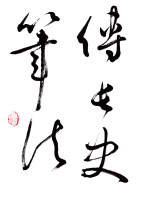 傳長史
筆法